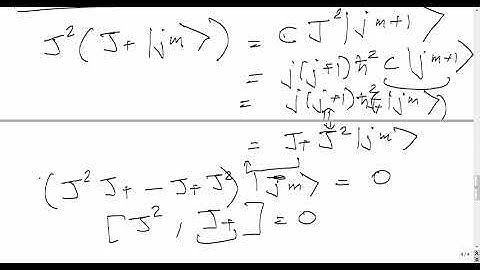 J²(J₊|jm⟩) = C J²|jm+1⟩
= j(j+1)ħ² C|jm+1⟩
= j(j+1)ħ² J₊|jm⟩
= J₊J²|jm⟩
(J²J₊ - J₊J²)|jm⟩ = 0
[J², J₊] = 0